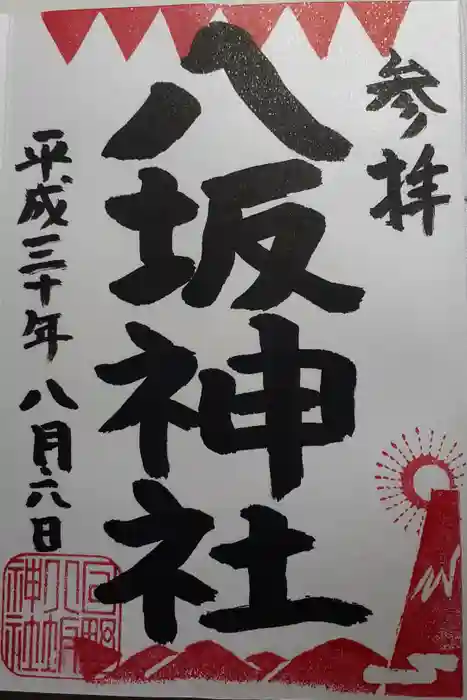 参拝
八坂神社
平成三十年八月六日
八坂
神社